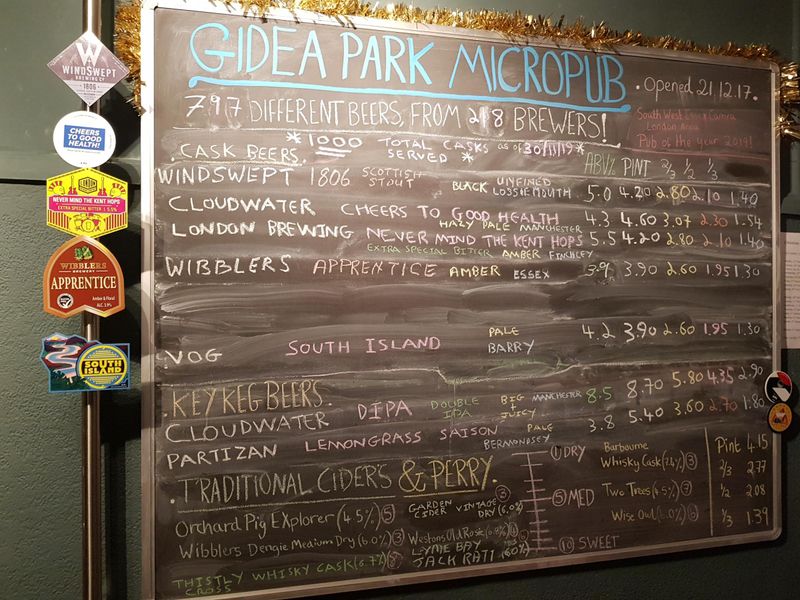 GIDEA PARK MICROPUB
. Opened 21.12.17.
797 DIFFERENT BEERS, FROM 218 BREWERS!
South West Essex Camra
London Area
Pub of the year 2019!
*1000 TOTAL CASKS as of 30/11/19*
SERVED *
.CASK BEERS.
ABV% PINT 2/3 1/2 1/3
WINDSWEPT 1806 SCOTTISH STOUT BLACK UNFINED LOSSEMOUTH 5.0 4.20 2.80 2.10 1.40
CLOUDWATER CHEERS TO GOOD HEALTH HAZY PALE MANCHESTER 4.3 4.60 3.07 2.30 1.54
LONDON BREWING NEVER MIND THE KENT HOPS 5.5 4.20 2.80 2.10 1.40
EXTRA SPECIAL BITTER AMBER FINCHLEY
WIBBLERS APPRENTICE AMBER ESSEX 3.9 3.90 2.60 1.95 1.30
VOG SOUTH ISLAND PALE BARRY 4.2 3.90 2.60 1.95 1.30
.KEY KEG BEERS.
CLOUDWATER DIPA DOUBLE IPA BIG + JUICY MANCHESTER 8.5 8.70 5.80 4.35 2.90
PARTIZAN LEMONGRASS SAISON PALE BERMONDSEY 3.8 5.40 3.60 2.70 1.80
.TRADITIONAL CIDERS & PERRY.
Orchard Pig Explorer (4.5%) (5)
GARDEN CIDER VINTAGE DRY (6.0%) (3)
Wibblers Dengie Medium Dry (6.0%) (3)
Westons Old Rosie
LYME BAY
JACK RATT (6.0%)
THISTLY CROSS WHISKY CASK (6.7%)
(1) DRY
(5) MED
(10) SWEET
Barbourne
Whisky Cask (7.4%) (3)
Two Trees (4.5%) (7)
Wise Owl (6.0%) (6)
Pint 4.15
2/3 2.77
1/2 2.08
1/3 1.39
W
WINDSWEPT
BREWING CO
1806
CHEERS
TO GOOD
HEALTH!
LONDON
NEVER MIND THE KENT HOPS
EXTRA SPECIAL BITTER | 5.5%
WIBBLERS
BREWERY
APPRENTICE
Amber & Floral
ALC. 3.9%
SOUTH
ISLAND